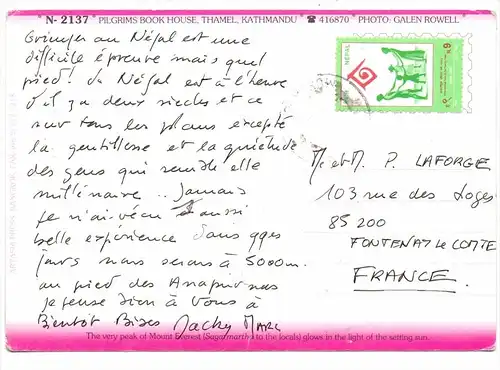 N- 2137 PILGRIMS BOOK HOUSE, THAMEL, KATHMANDU ☎ 416870 PHOTO: GALEN ROWELL
Grimper au Népal est une
difficile épreuve mais quel
pied! Le Népal est à l'heure
d'il ya deux siècles et ce
sur tous les plans excepté
la gentillesse et la quiétude
des gens qui semble elle
millénaire.. Jamais
je n'ai vécu aussi
belle expérience. Dans qqes
jours nous serons à 5000m.
au pied des Anapurnas
je pense bien à vous à
Bientôt Bises Jacky MARC
NEPAL
M et M. P. LAFORGE
103 rue des Loges
85 200
FONTENAY LE COMTE
FRANCE
The very peak of Mount Everest (Sagarmatha to the locals) glows in the light of the setting sun.